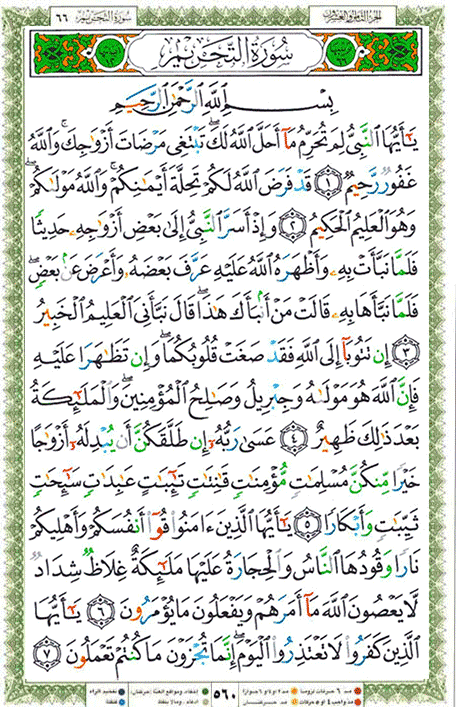 سُورَةُ التَّحْرِيمِ ٦٦
سُورَةُ التَّحْرِيمِ
بِسْمِ اللَّهِ الرَّحْمَٰنِ الرَّحِيمِ
يَٰٓأَيُّهَا النَّبِىُّ لِمَ تُحَرِّمُ مَآ أَحَلَّ اللَّهُ لَكَ ۖ تَبْتَغِى مَرْضَاتَ أَزْوَٰجِكَ ۚ وَاللَّهُ
غَفُورٌ رَّحِيمٌ ١ قَدْ فَرَضَ اللَّهُ لَكُمْ تَحِلَّةَ أَيْمَٰنِكُمْ ۚ وَاللَّهُ مَوْلَىٰكُمْ ۖ
وَهُوَ الْعَلِيمُ الْحَكِيمُ ٢ وَإِذْ أَسَرَّ النَّبِىُّ إِلَىٰ بَعْضِ أَزْوَٰجِهِۦ حَدِيثًا
فَلَمَّا نَبَّأَتْ بِهِۦ وَأَظْهَرَهُ اللَّهُ عَلَيْهِ عَرَّفَ بَعْضَهُۥ وَأَعْرَضَ عَنۢ بَعْضٍ ۖ
فَلَمَّا نَبَّأَهَا بِهِۦ قَالَتْ مَنْ أَنۢبَأَكَ هَٰذَا ۖ قَالَ نَبَّأَنِىَ الْعَلِيمُ الْخَبِيرُ
٣ إِن تَتُوبَآ إِلَى اللَّهِ فَقَدْ صَغَتْ قُلُوبُكُمَا ۖ وَإِن تَظَٰهَرَا عَلَيْهِ
فَإِنَّ اللَّهَ هُوَ مَوْلَىٰهُ وَجِبْرِيلُ وَصَٰلِحُ الْمُؤْمِنِينَ ۖ وَالْمَلَٰٓئِكَةُ
بَعْدَ ذَٰلِكَ ظَهِيرٌ ٤ عَسَىٰ رَبُّهُۥٓ إِن طَلَّقَكُنَّ أَن يُبْدِلَهُۥٓ أَزْوَٰجًا
خَيْرًا مِّنكُنَّ مُسْلِمَٰتٍ مُّؤْمِنَٰتٍ قَٰنِتَٰتٍ تَٰٓئِبَٰتٍ عَٰبِدَٰتٍ سَٰٓئِحَٰتٍ
ثَيِّبَٰتٍ وَأَبْكَارًا ٥ يَٰٓأَيُّهَا الَّذِينَ ءَامَنُوا۟ قُوٓا۟ أَنفُسَكُمْ وَأَهْلِيكُمْ
نَارًا وَقُودُهَا النَّاسُ وَالْحِجَارَةُ عَلَيْهَا مَلَٰٓئِكَةٌ غِلَاظٌ شِدَادٌ
لَّا يَعْصُونَ اللَّهَ مَآ أَمَرَهُمْ وَيَفْعَلُونَ مَا يُؤْمَرُونَ ٦ يَٰٓأَيُّهَا
الَّذِينَ كَفَرُوا۟ لَا تَعْتَذِرُوا۟ الْيَوْمَ ۖ إِنَّمَا تُجْزَوْنَ مَا كُنتُمْ تَعْمَلُونَ ٧
٥٦٠